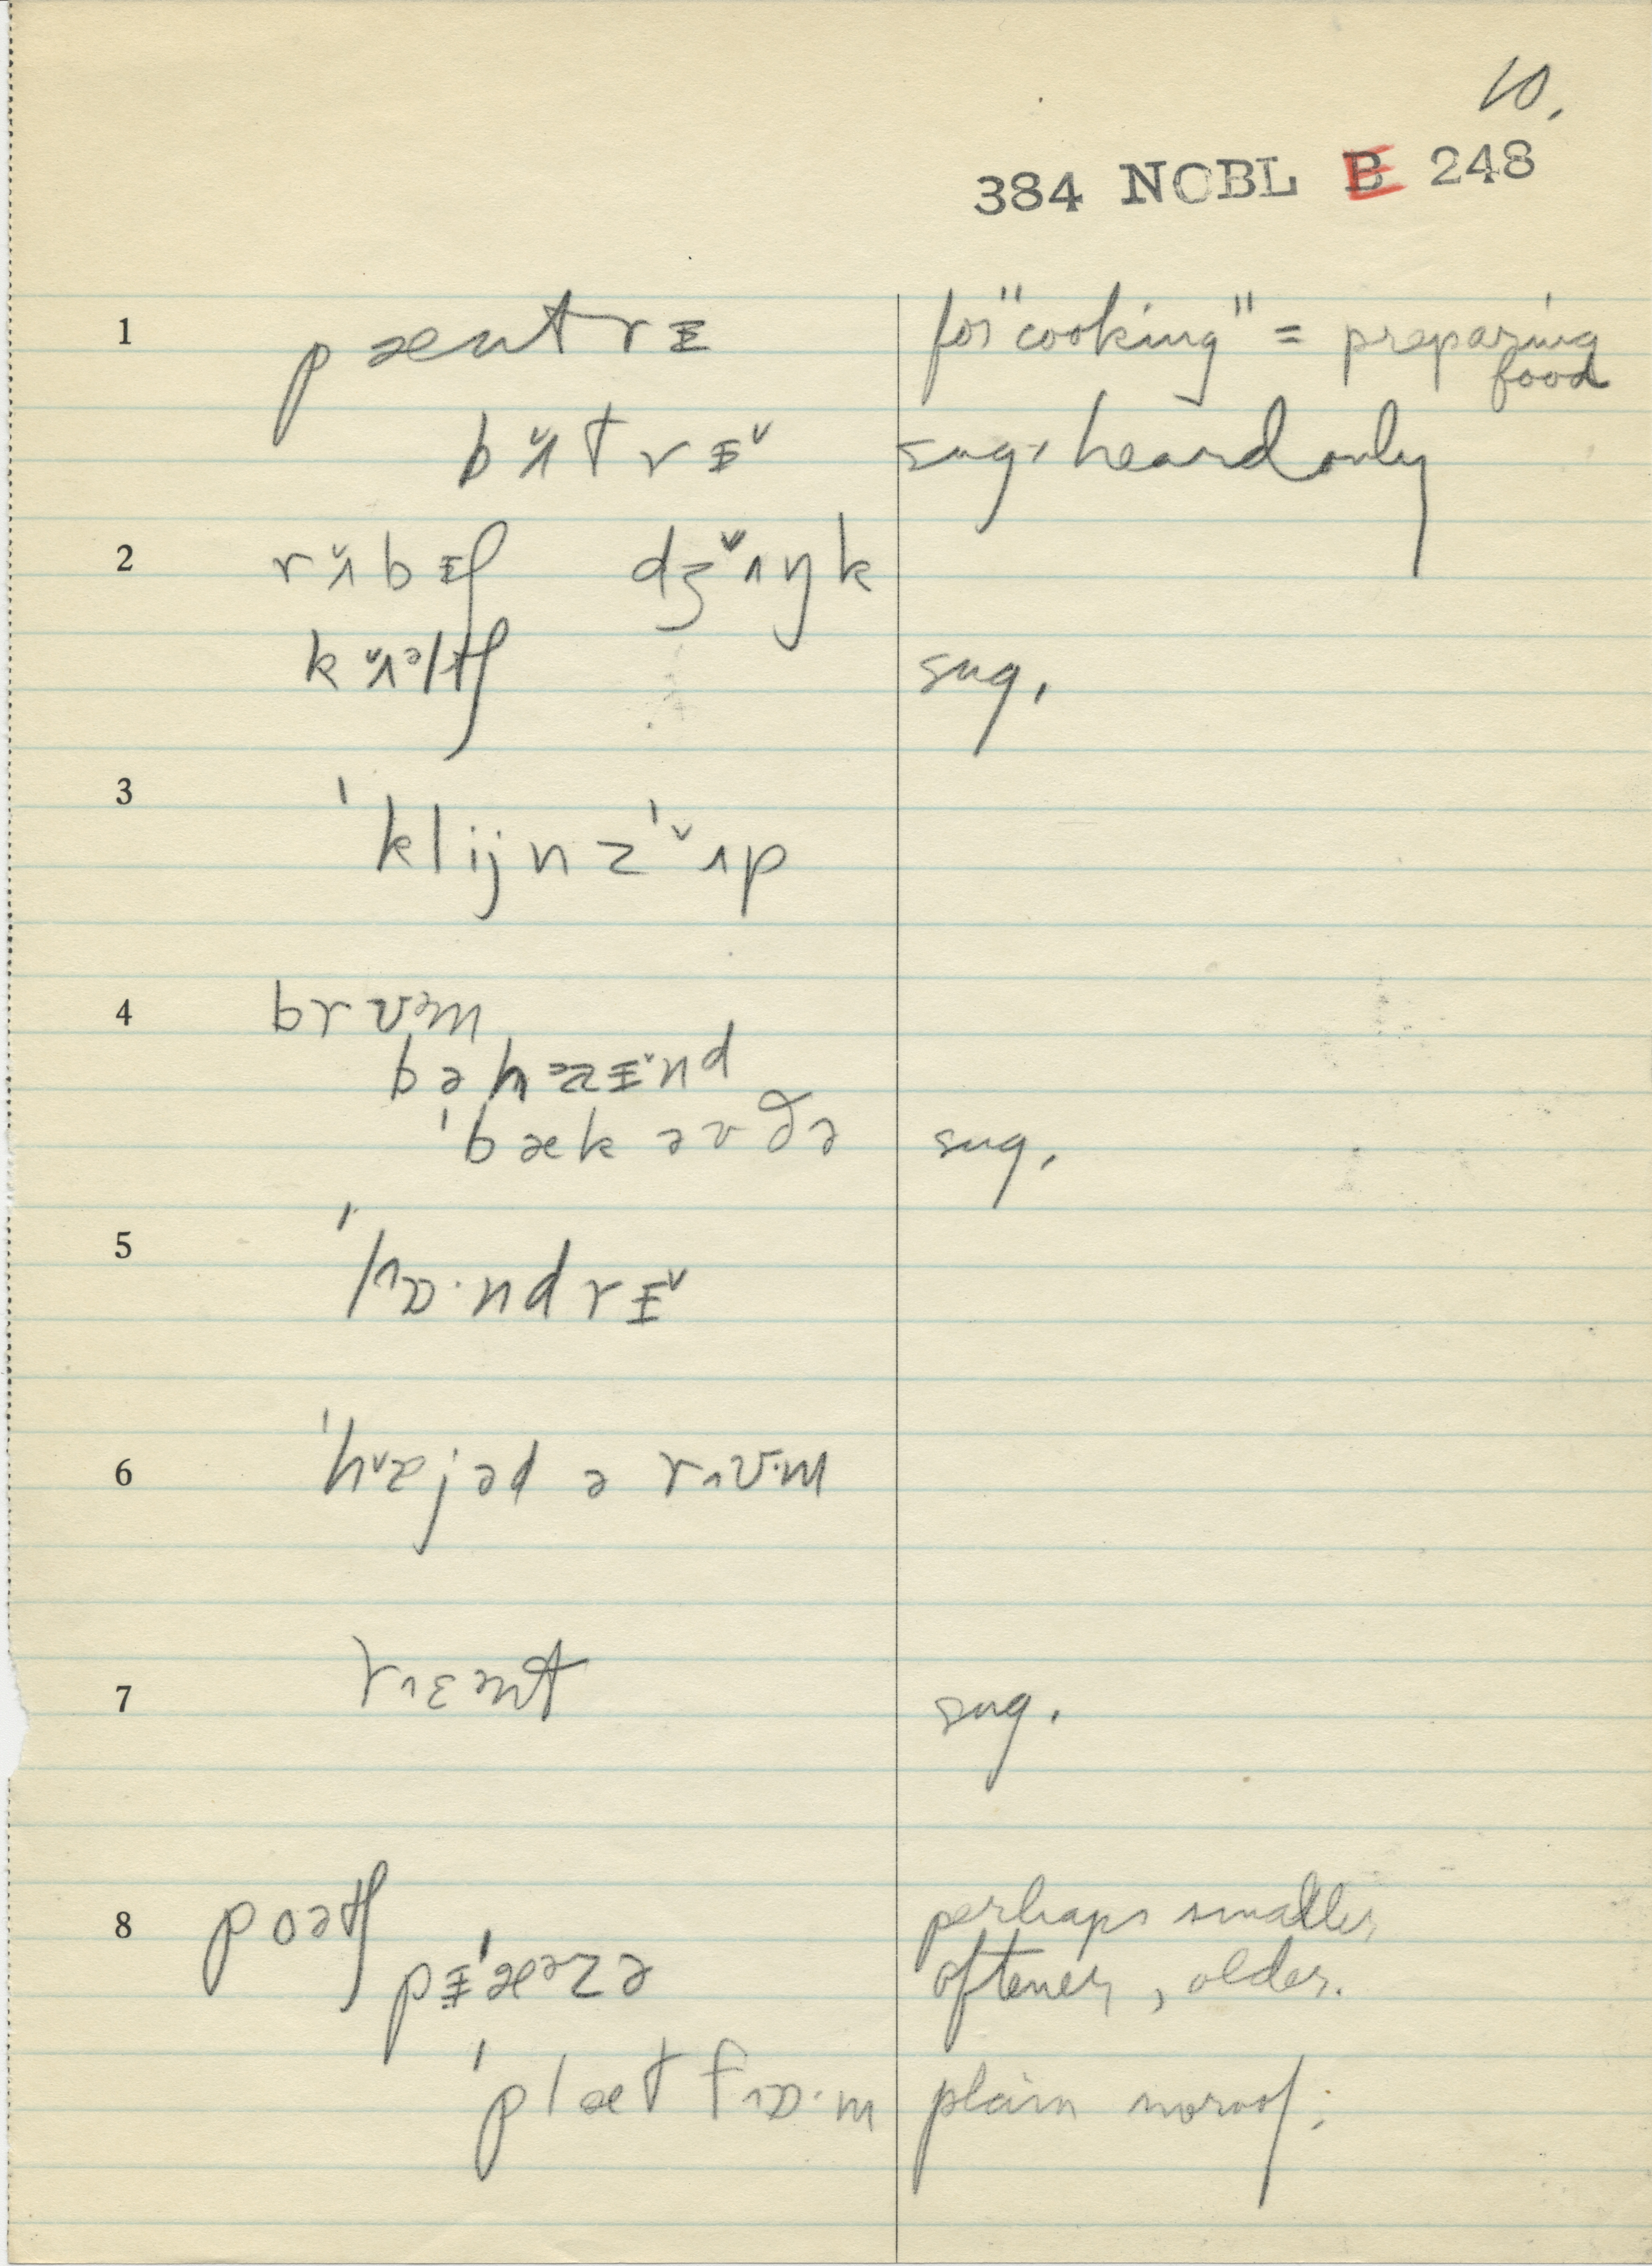 10.
384 NOBL B 248
1 pæntrɪ for "cooking" = preparing
food
bʌ̌trɪˇ sug. heard only
2 rʌ̌bɪʃ dʒʌ̌ŋk
kʌ̌əltʃ sug.
3 ˈklijnzˈʌ̌p
4 brʊəm
bəhæɪˇnd
ˈbæk əv ðə sug.
5 ˈlɒ·ndrɪˇ
6 rʊ·m
7 rɛənt sug.
8 poətʃ perhaps smaller,
pɪˈæəzə oftener, older.
ˈplætfɒ·m plain no roof;